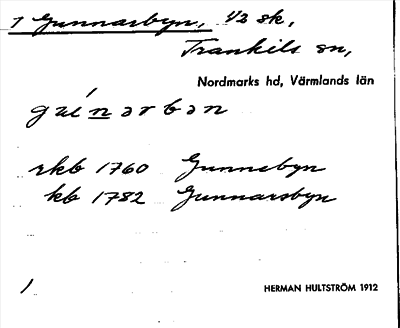 1 Gunnarsbyn, 1/2 sk,
Trankils sn,
Nordmarks hd, Värmlands län
rkb 1760 Gunnebyn
kb 1782 Gunnarsbyn
1
HERMAN HULTSTRÖM 1912